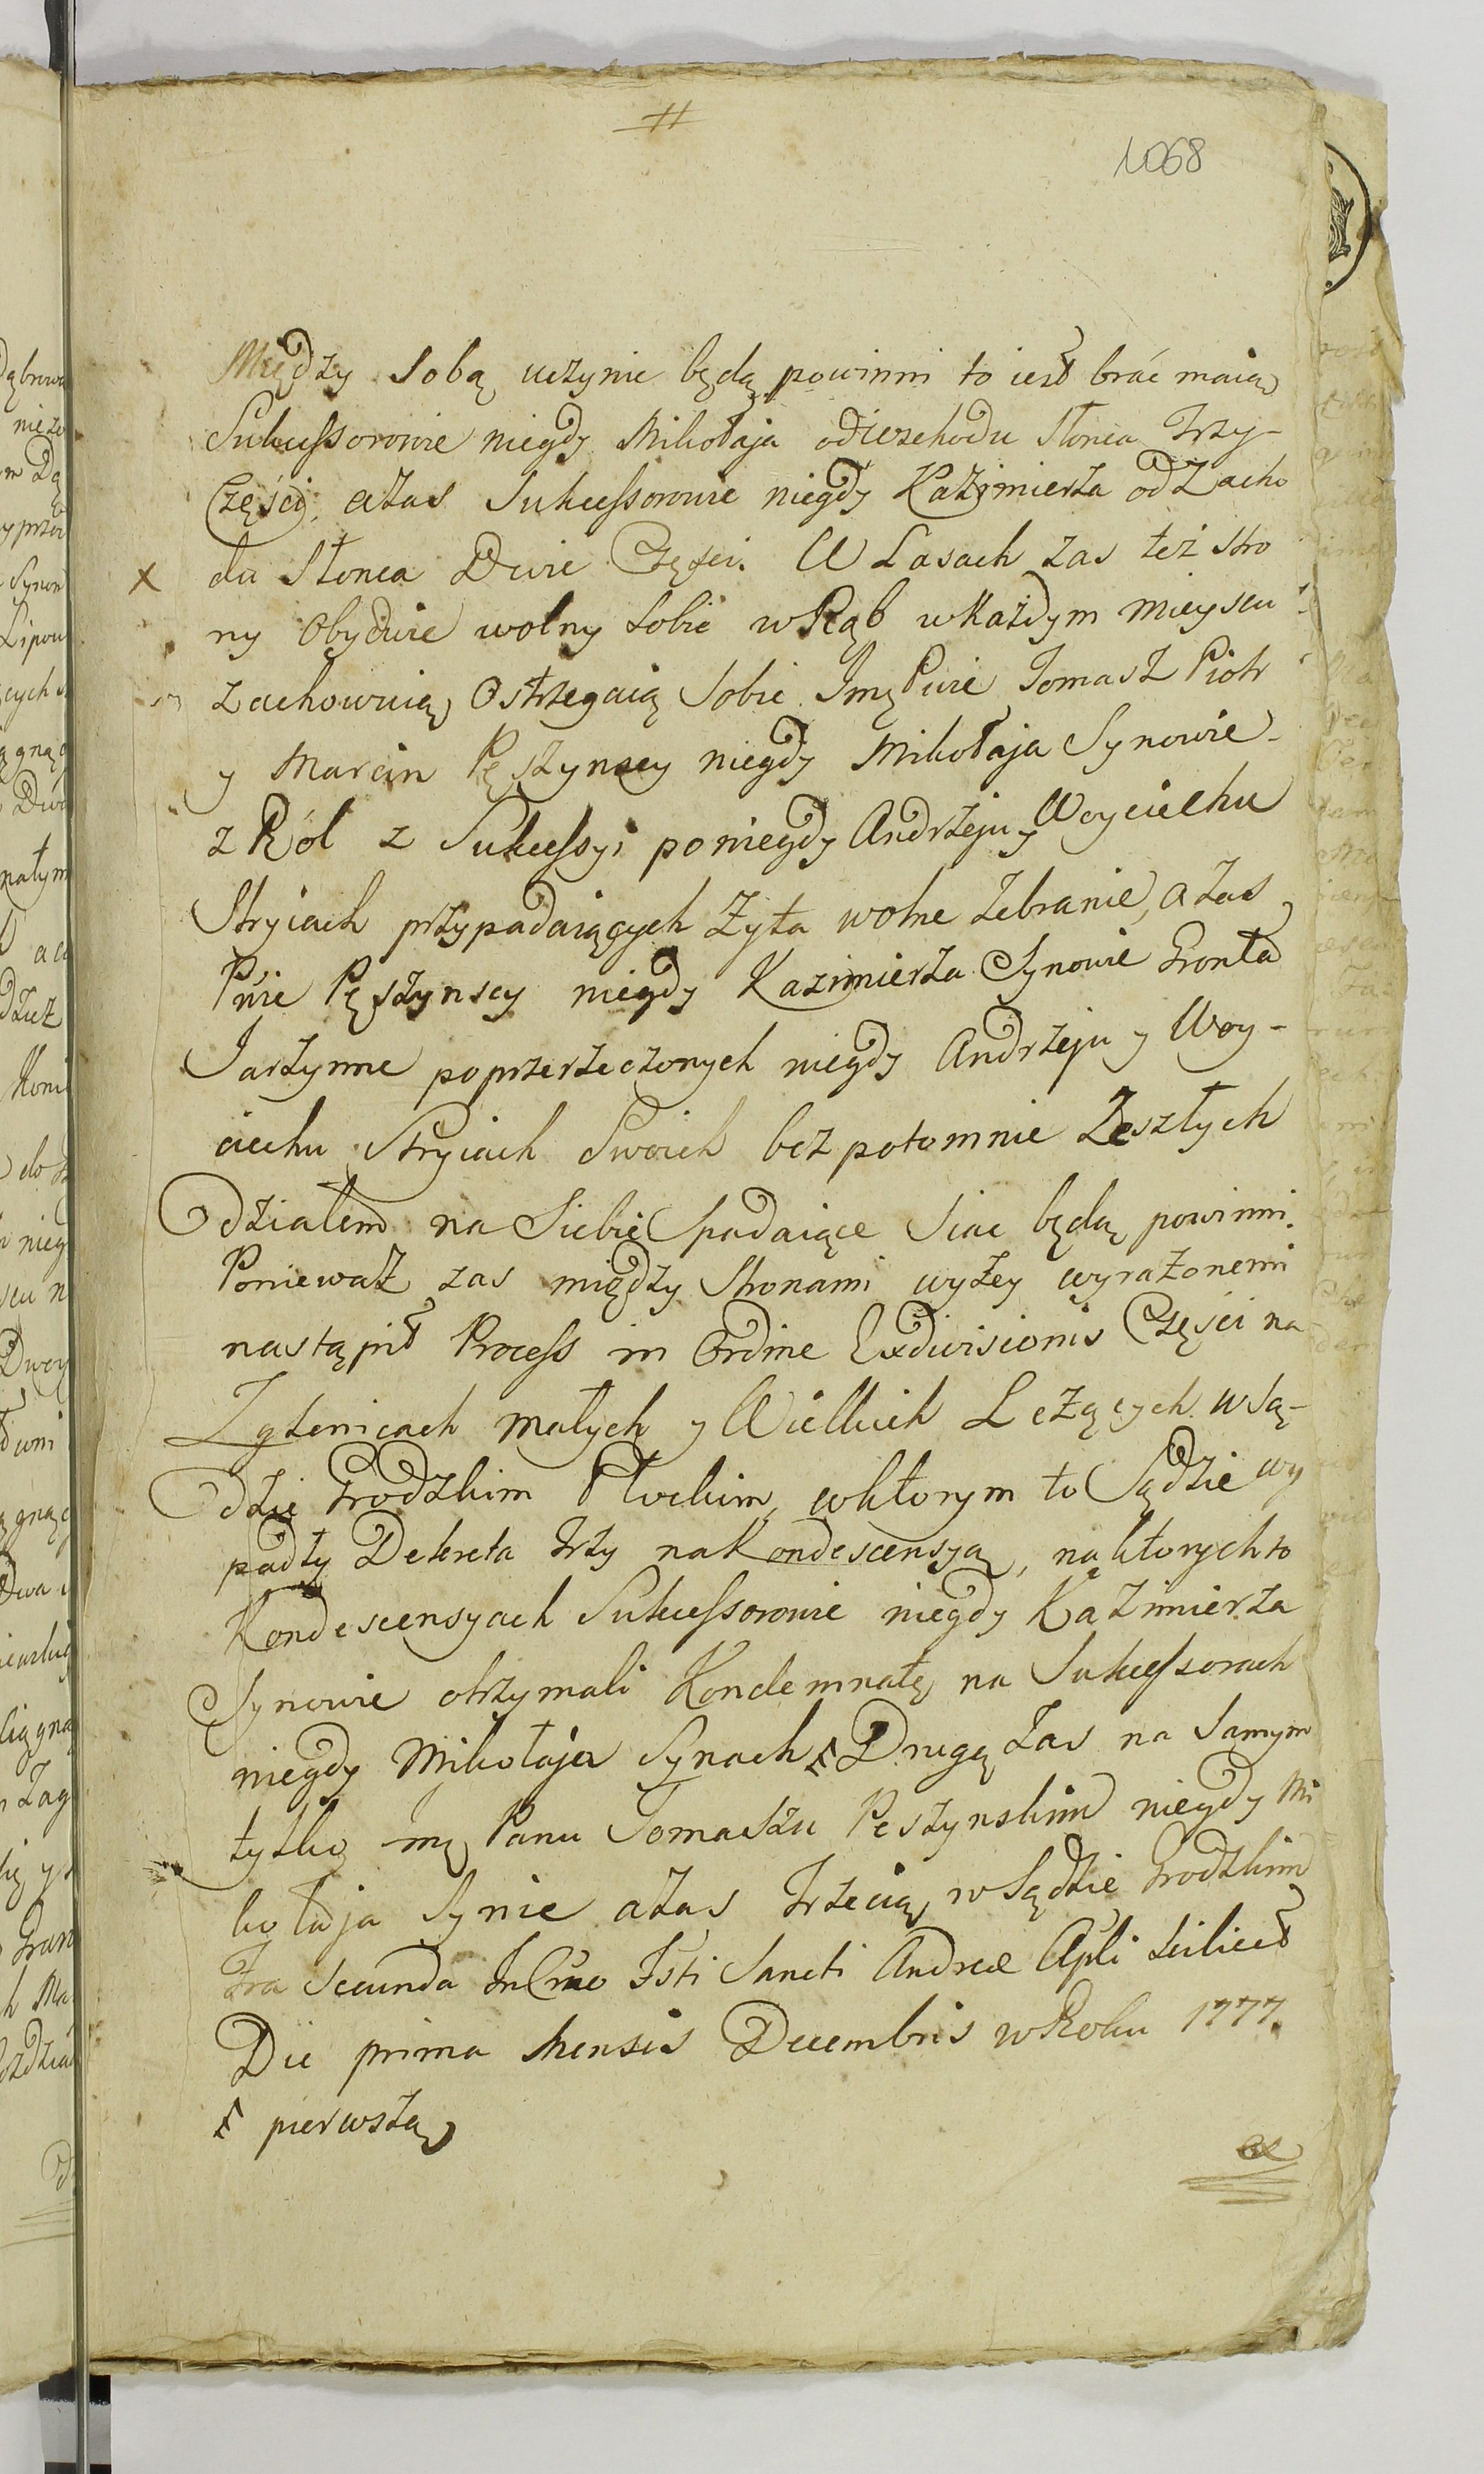 1068
Między Sobą uczynic będą powinni to iest brać maią
Sukcessorowie niegdy Mikołaja od wschodu Słonca Trzy-
Części, azas Sukcessorowie niegdy Kazimierza od Zacho
du Słonca Dwie Części. W Lasach zas też stro
ny Obydwie wolny sobie wRąb w Każdym mieyscu
zachowuią, Ostrzegaią Sobie Imę Pwie Tomasz Piotr
y Marcin Pęszynscy niegdy Mikołaja Synowie-
z Ról z Sukcessyi po niegdy Andrzeju y Woyciechu
Stryiach przypadaiących Zyta wolne zebranie, a zas
Pwie Pęszynscy niegdy Kazimierza Synowie Gronta
Jarzynne poprzerzeczonych niegdy Andrzeju y Woy-
ciechu Stryiach Swoich bez potomnie Zeszłych
Działem na Siebie Spadaiące Siac będą powinni.
Poniewaz zas między Stronami wyżey wyrażonemi
nastąpił Process in Ordine Exdivisionis Części na
Zglenicach małych y Wielkich Leżących w Są-
dzie Grodzkim Płockim, w ktorym to Sądzie wy
padły Dekreta trzy na Kondescensyą, na ktorych to
Kondescensyach Sukcessorowie niegdy Kazimierza
Synowie otrzymali Kondemnatę na Sukcessorach
niegdy Mikołaja Synach Drugą zas na Samym
tylko Imę Panu Tomaszu Pęszynskim niegdy Mi
kołaja Synie a zas Trzecią w Sądzie Grodzkim
Fra Secunda In Crno Fsti Sancti Andreæ Apli scilicet
Die prima Mensis Decembris w Roku 1777.
pierwszą